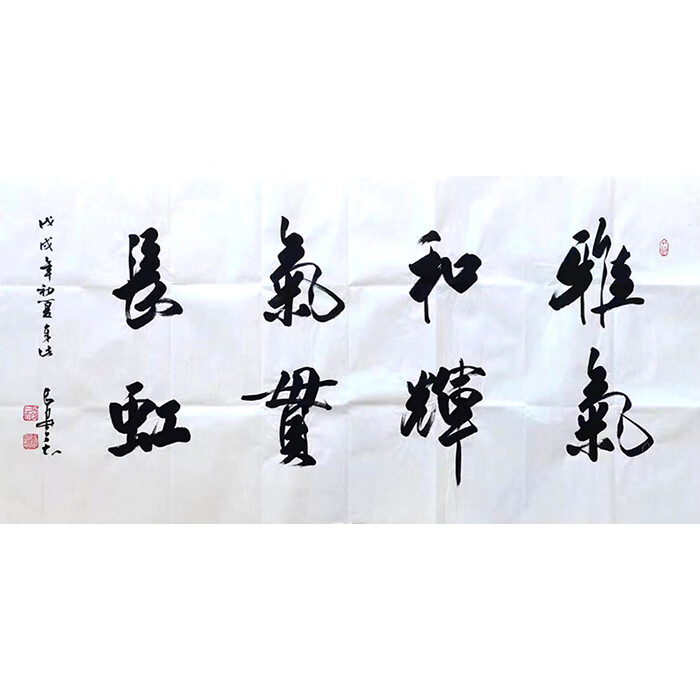 雅氣
和輝
氣貫
長虹
戊戌年初夏